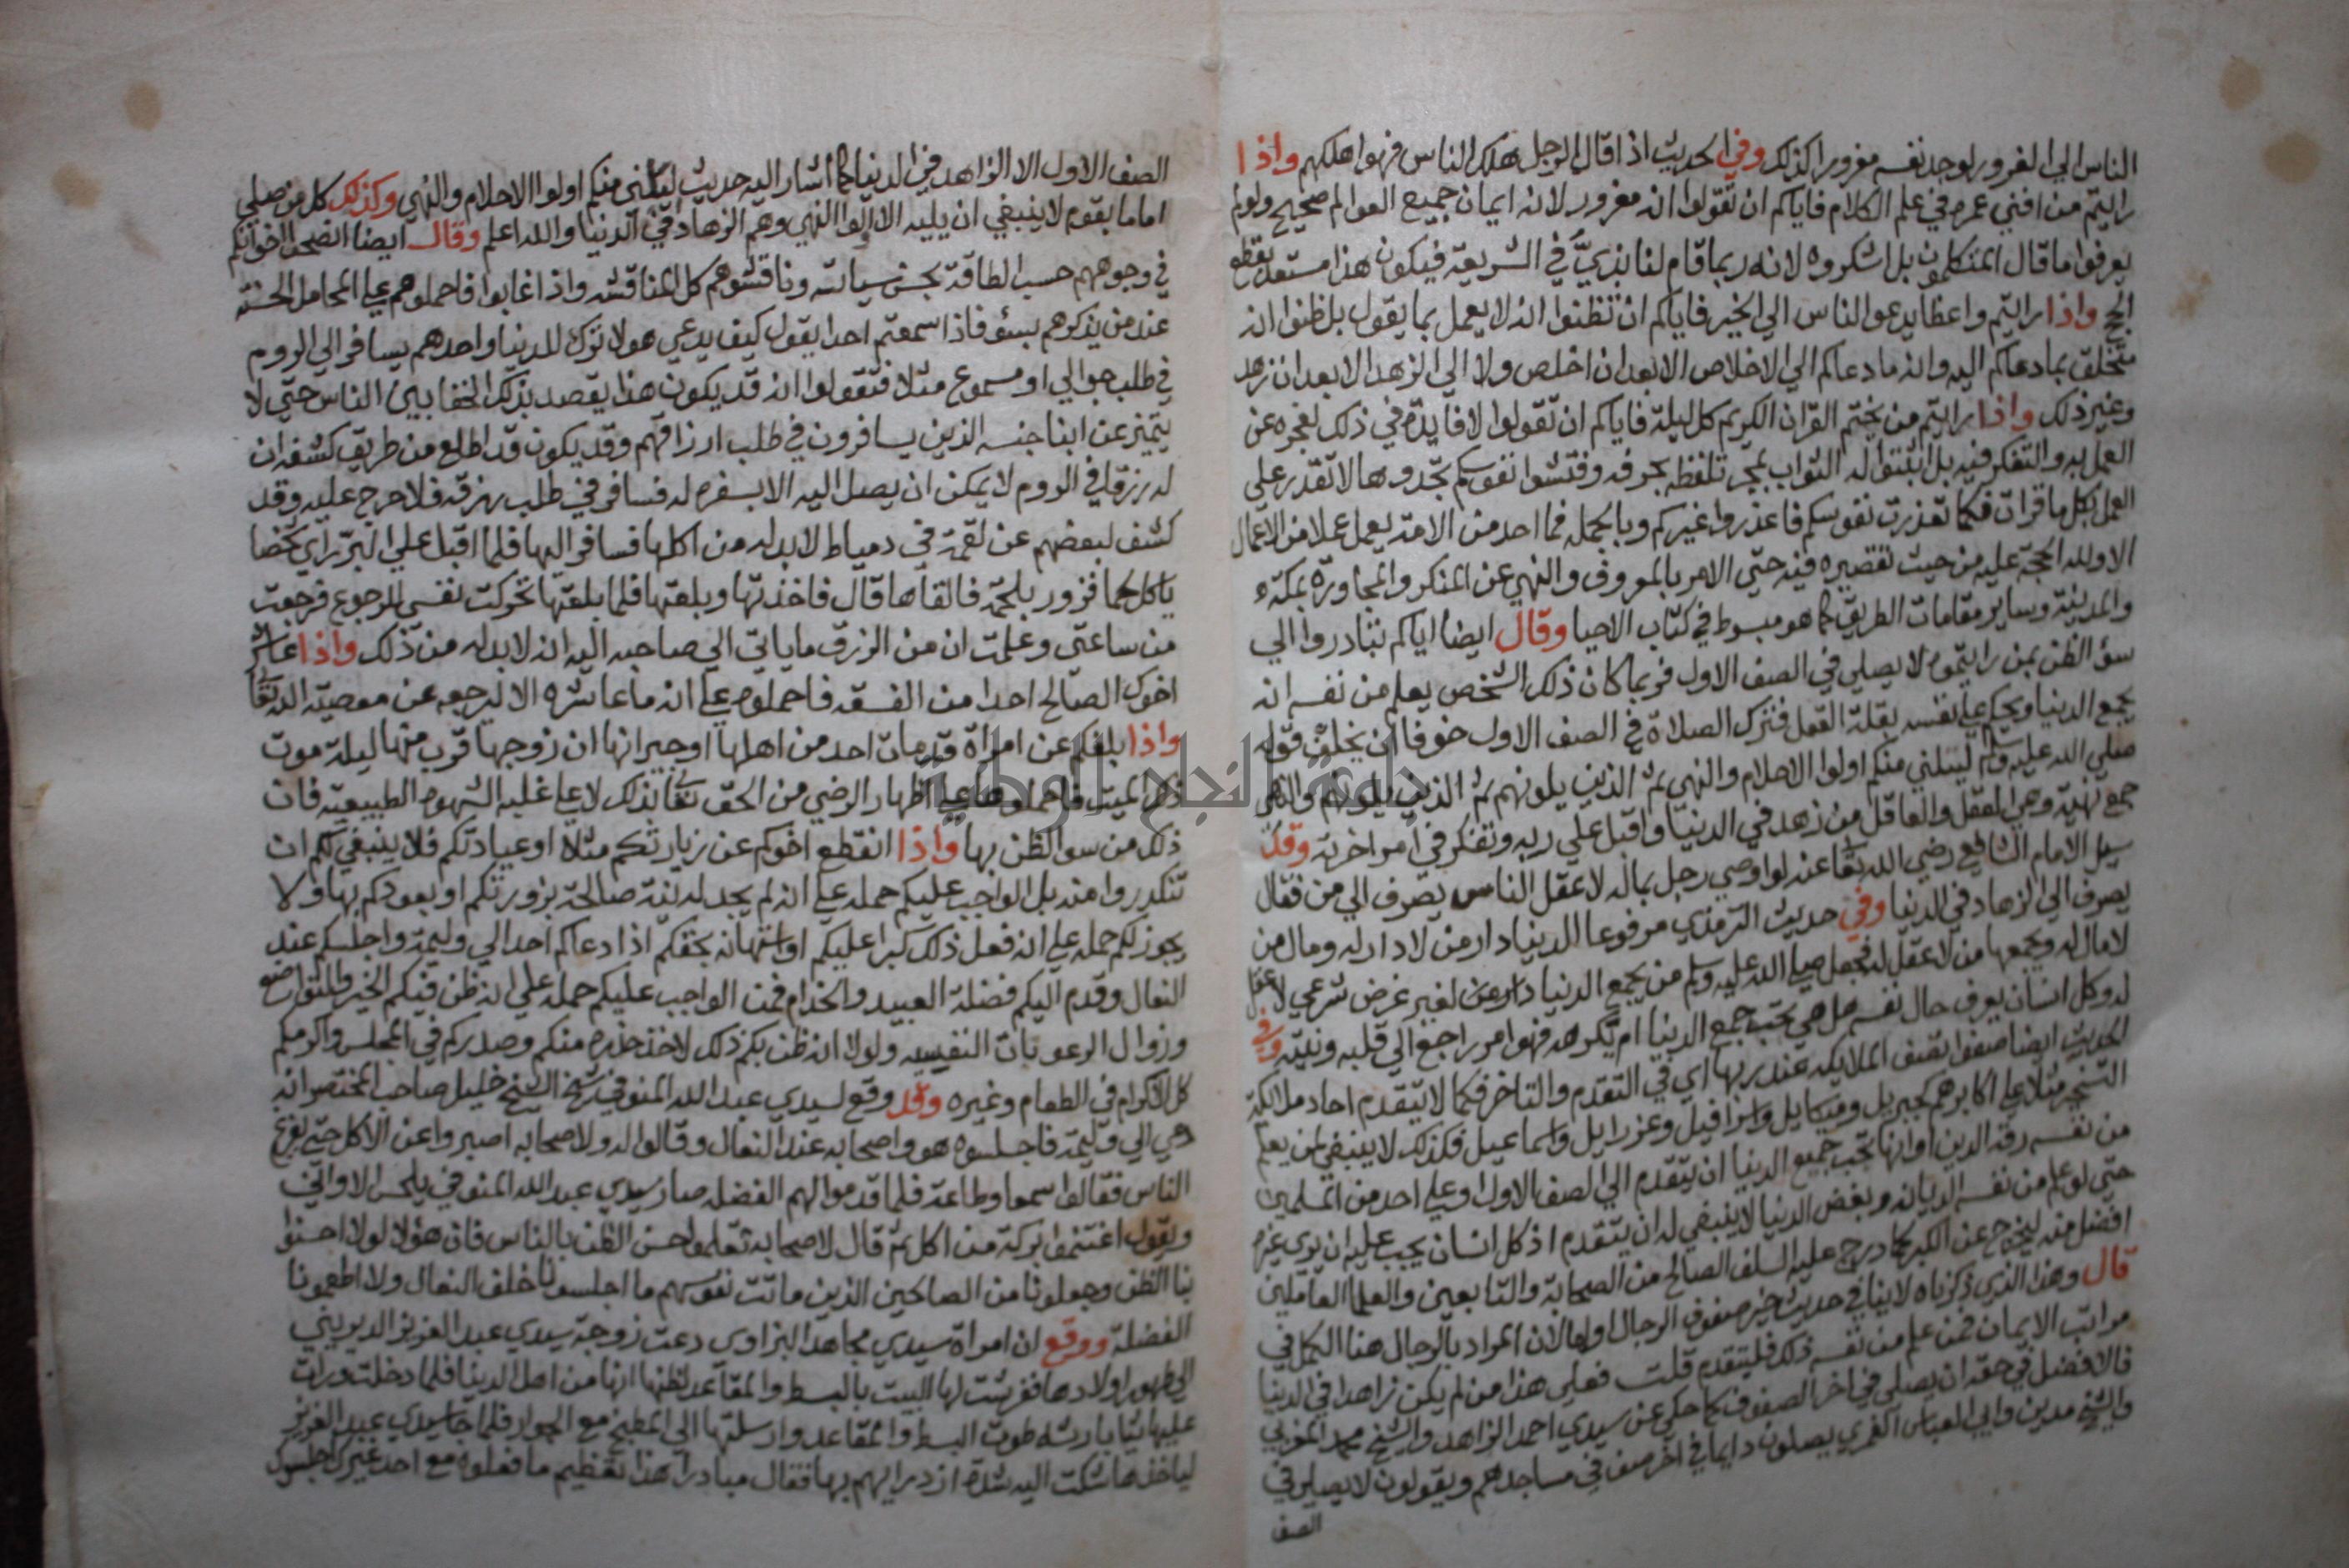 الناس الي الغرور لوجد نفسه مغرورا كذلك وفي الحديث اذا قال الرجل هلك الناس فهوا هلكهم واذا
رايتم من افني عمره في علم الكلام فاياكم ان تقولوا انه مغرور لانه ايمان جميع العوالم صحيح ولولم
يعرفوا ما قال المتكلمون بل اشكروه لانه ربما قام لنا بذيّ في الشريعة فيكون هذا مستعد بقطع
الحج واذا رايتم واعظا يدعو الناس الي الخير فاياكم ان تظنوا انه لا يعمل بما يقول بل ظنوا انه
متخلق بما دعاكم اليه وانه ما دعاكم الي الاخلاص الا بعد ان اخلص ولا الي الزهد الا بعد ان زهد
وغير ذلك واذا رايتم من يختم القران الكريم كل ليلة فاياكم ان تقولوا لا فايدة في ذلك لعجزه عن
العمل به والتفكر فيه بل اثبتوا له الثواب بمجر تلفظه بحروفه وفتشوا نفوسكم تجدوها لا تقدر علي
العمل بكل ما قرات فكما تعذرت نفوسكم فاعذروا غيركم وبالجمله فما احد من الامة يعمل عملا من الاعمال
الا ولله الحجة عليه من حيث تقصيره فيه حتي الامر بالمعروف والنهي عن المنكر والمجاورة بمكة
والمدينة وساير مقامات الطريق كما هو مبسوط في كتاب الاحيا وقال ايضا اياكم تبادروا الي
سؤ الظن بمن رايتموه لا يصلي في الصف الاول فربما كان ذلك الشخص يعلم من نفسه انه
يجمع الدنيا ويحكم علي نفسه بقلة العقل فترك الصلاة في الصف الاول خوفا ان يخالف قوله
صلي الله عليه وسلم ليلني منكم اولوا الاحلام والنهي ثم الذين يلونهم ثم الذين يلونهم والنهي
جمع نهية وهي العقل والعاقل من زهد في الدنيا واقبل علي ربه وتفكر في امر اخرته وقد
سيل الامام الشافعي رضي الله تعا عنه لو اوصي رجل بماله لا عقل الناس يصرف الي من فقال
يصرف الي الزهاد في الدنيا وفي حديث الترمذي مرفوعا الدنيا دار من لا دار له ومال من
لا مال له ويجمعها من لا عقل له فجعل صلي الله عليه وسلم من يجمع الدنيا لغير غرض شرعي لا عقل
له وكل انسان يعرف حال نفسه هل هي تحب جمع الدنيا ام تكرهه فهوا امر راجع الي قلبه ونيته وفي
الحديث ايضا صفوا تصف الملايكه عند ربها اي في التقدم والتاخر فكما لا يتقدم احاد ملايكة
مثلا علي اكابرهم كجبريل وميكايل واسرافيل وعزرايل واسماعيل فكذلك لا ينبغي لمن يعلم
من نفسه رقة الدين او انها تحب جميع الدنيا ان يتقدم الي الصف الاول وعلي احد من المسلمين
حتي لو علم من نفسه الديانه وبغض الدنيا لا ينبغي له ان يتقدم اذ كل انسان يجب عليه ان يري غيره
افضل منه ليخرج عن الكبر كما درج عليه السلف الصالح من الصحابة والتابعين والعلما العاملين
قال وهذا الذي ذكرناه لا ينافي حديث خير صفوف الرجال اولها لان المراد بالرجال هنا الكمل في
مراتب الايمان فمن علم من نفسه ذلك فليتقدم قلت فعلي هذا من لم يكن زاهدا في الدنيا
فالافضل في حقه ان يصلي في اخر الصفوف كما حكي عن سيدي احمد الزاهد والشيخ محمد المغربي
والشيخ مدين وابي العباس الغمري يصلون دايما في اخر صف في مساجدهم ويقولون لا يصلي في
الصف
الصف الاول الا الزاهد في الدنيا كما اشار اليه حديث ليلني منكم اولوا الاحلام والنهي وكذلك كل من صلي
اماما بقوم لا ينبغي ان يليه الا الوا النهي وهم الزهاد في الدنيا والله اعلم وقال ايضا انصحوا اخوانكم
في وجوههم حسب الطاقة بحسن سياسة وناقشوهم كل المناقشه واذا غابوا فاحملوهم علي المحامل الحسنه
عند من يذكرهم بسؤ فاذا سمعتم احدا يقول كيف يدعي هولا ترك الدنيا واحدهم يسافر الي الروم
في طلب جوالي او مسموع مثلا فتقولوا انه قد يكون هذا يقصد بذلك الخفا بين الناس حتي لا
يتميز عن ابنا جنسه الذين يسافرون في طلب ارزاقهم وقد يكون قد اطلع من طريق كشفه ان
له رزقا في الروم لا يمكن ان يصل اليه الا بسفره له فسافر في طلب رزقه فلا حرج عليه وقد
كشف لبعضهم عن لقمة في دمياط لا بد له من اكلها فسافر اليها فلما اقبل علي البر راي شخصا
ياكل لحما فزور بلحمة فالقاها قال فاخذتها وبلعتها فلما بلعتها تحركت نفسي للرجوع فرجعت
من ساعتي وعلمت ان من الرزق ما ياتي الي صاحبه اليه انه لا بد له من ذلك واذا عاشر
اخوك الصالح احدا من الفسقه فاحملوه علي انه ما عاشره الا ليرجعه عن معصية الله تعا
واذا بلغكم عن امراة قد مات احد من اهلها او جيرانها ان زوجها قرب منها ليلة موت
ذكر الميت فاحملوها علي اظهار الرضي من الحق تعا بذلك لا علي غلبه الشهوه الطبيعيه فان
ذلك من سو الظن بها واذا انقطع اخوكم عن زيارتكم مثلا او عيادتكم فلا ينبغي لكم ان
تتكدروا منه بل الواجب عليكم حمله علي انه لم يجد له نية صالحة يزوركم او يعودكم بها ولا
يجوز لكم حمله علي انه فعل ذلك كبرا عليكم او استهانه بحقكم اذا دعاكم احد الي وليمة واجلسكم عند
النعال وقدم اليكم فضلة العبيد والخدام فمن الواجب عليكم حمله علي انه ظن فيكم الخير والتواضع
وزوال الرعونات النفسيه ولولا انه ظن بكم ذلك لاخذ حذره منكم وصدركم في المجلس واكرمكم
كل الاكرام في الطعام وغيره وقد وقع لسيدي عبد الله المنوفي شيخ الشيخ خليل صاحب المختصر انه
دعي الي وليمة فاجلسوه هو واصحابه عند النعال وقالوا له ولاصحابه اصبروا عن الاكل حتي يفرغ
الناس فقالوا سمعا وطاعة فلما قدموا لهم الفضله صار سيدي عبد الله المنوفي يلحس الاواني
ويقول اغتنموا بركة من اكل ثم قال لاصحابه تعلموا حسن الظن بالناس فان هؤلا لولا احسنوا
بنا الظن وجعلونا من الصالحين الذين ماتت نفوسهم ما اجلسونا خلف النعال ولا اطعمونا
الفضلة ووقع ان امراة سيدي مجاهد البزاوي دعت زوجة سيدي عبد العزيز الديريني
الي طهور اولادها ففرشت لها البيت بالبسط والمقاعد لظنها انها من اهل الدنيا فلما دخلت ورات
عليها ثيابا رثه طوت البسط والمقاعد وارسلتها الي المطبخ مع الجوار فلما جا سيدي عبد العزيز
لياخذها شكت اليه شدة ازدرايهم بها فقال مبادرا هذا تعظيم ما فعلوه مع احد غيرك اجلسوك